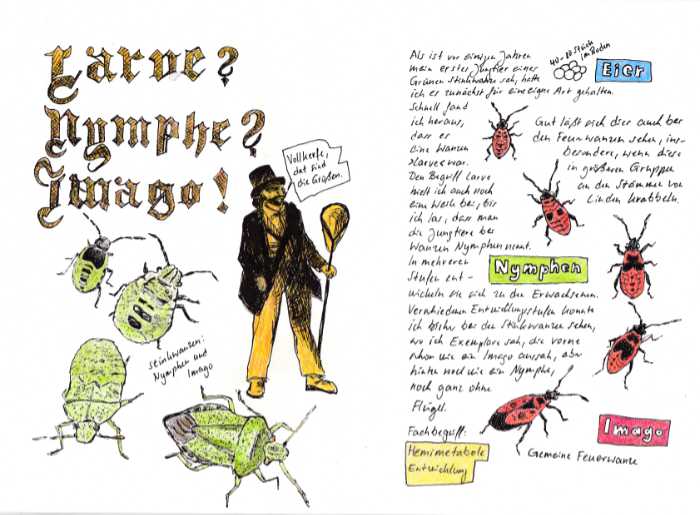 Larve?
Nymphe?
Imago!
Vollkerfe,
dat sind
die Großen.
Stinkwanzen:
Nymphen und
Imago
Als ich vor einigen Jahren
mein erstes Jungtier eines
Grünen Stinkwanze sah, hatte
ich es zunächst für eine eigne Art gehalten.
Schnell fand
ich heraus,
dass es
eine Wanzen
larve war.
Den Begriff Larve
hielt ich auch noch
eine Weile bei, bis
ich las, dass man
die Jungtiere bei
Wanzen Nymphen nennt.
In mehreren
Stufen ent-
wickeln sie sich zu den Erwachsenen.
Verschiedene Entwicklungsstufen konnte
ich bisher bei den Stinkwanzen sehen,
wo ich Exemplare sah, die vorne
schon wie ein Imago aussah, aber
hinten noch wie ein Nymphe,
noch ganz ohne
Flügel.
Fachbegriff:
Hemimetabole
Entwicklung
40-80 Stück
im Boden
Eier
Gut läßt sich dies auch bei
den Feuerwanzen sehen, ins-
besondere, wenn diese
in größeren Gruppen
an den Stämmen von
Linden krabbeln.
Nymphen
Imago
Gemeine Feuerwanze